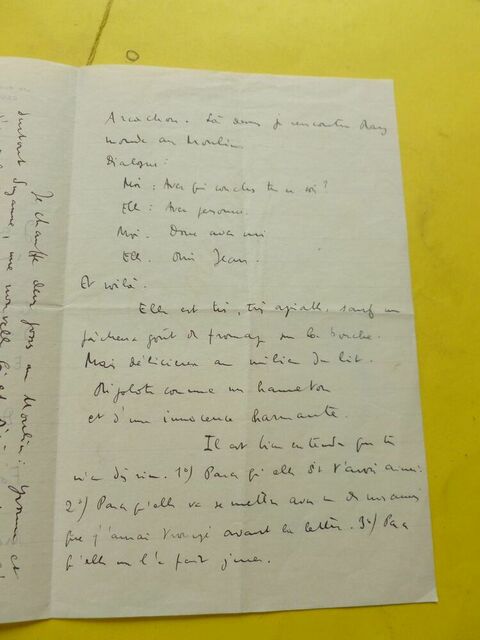 Arcachon. Là dessus je rencontre
monde au Moulin
Dialogue:
Moi : Avec qui couches tu ce soir?
Elle : Avec personne.
Moi. Donc avec moi
Elle. Oui Jean.
Et voilà.
Elle est très, très agréable, sauf un
fâcheux goût de fromage sur la bouche.
Mais délicieuse au milieu du lit.
Rigolote comme un hanneton
et d'une innocence charmante.
Il est bien entendu que tu
n'en dis rien. 1°) Parce qu'elle dit t'avoir aimé.
2°) Parce qu'elle va se mettre avec un de mes amis
que j'aurai trompé avant la lettre. 3°) Parce
qu'elle ne l'a fait
Je chauffe deux jours au Moulin; Yvonne et
surtout Suzanne, une nouvelle